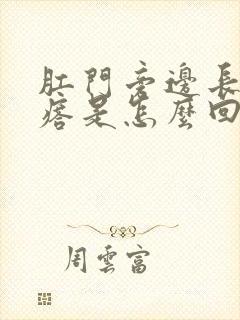 肛門旁邊長
痞是怎麼回
周雲富